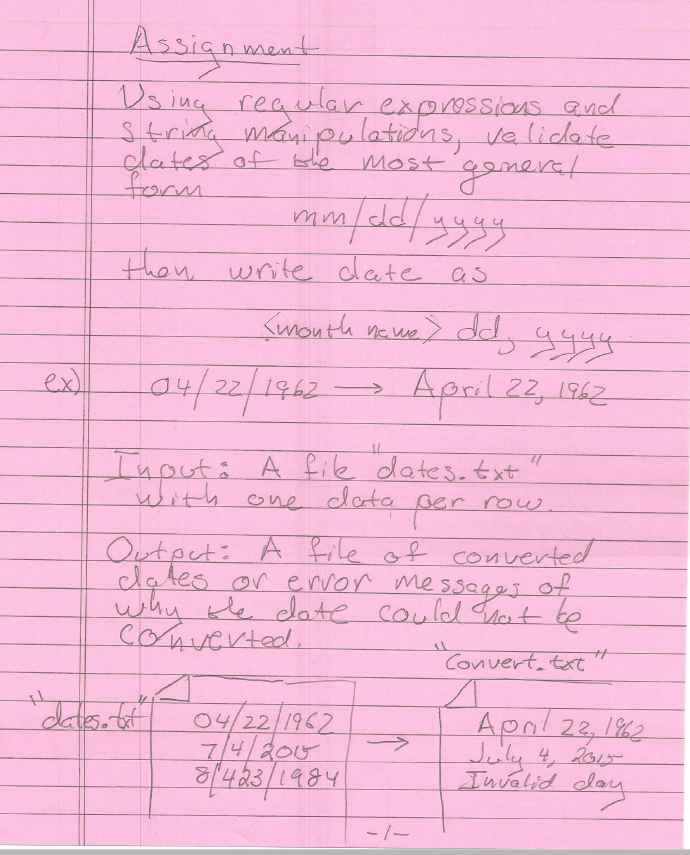 Assignment
Using regular expressions and
string manipulations, validate
dates of the most general
form
mm/dd/yyyy
then write date as
<month name> dd, yyyy
ex) 04/22/1962 → April 22, 1962
Input: A file "dates.txt"
with one data per row.
Output: A file of converted
dates or error messages of
why the date could not be
converted.
"Convert.txt"
"dates.txt"
04/22/1962 → April 22, 1962
7/4/2015 July 4, 2015
8/423/1984 Invalid day
-1-